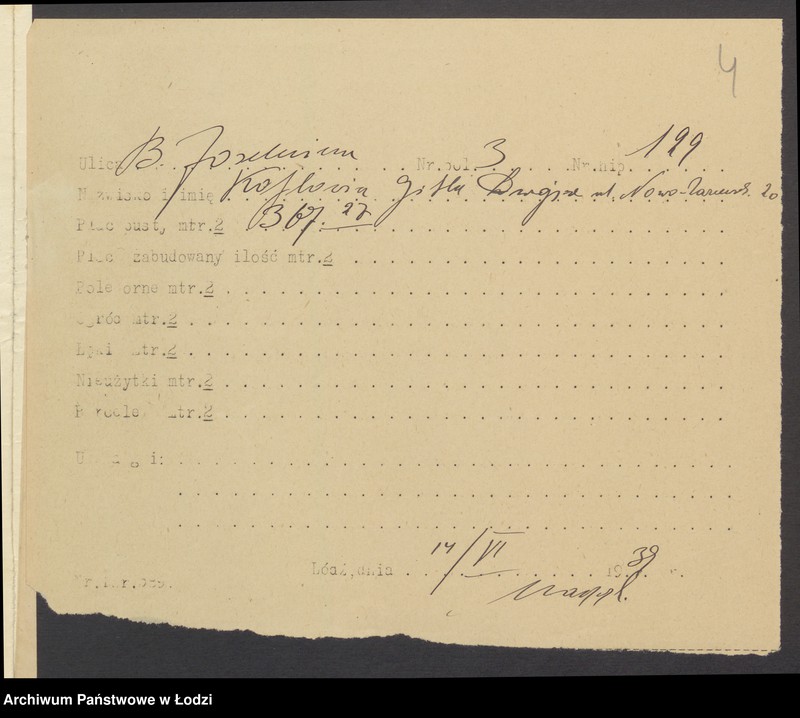 4
Ulica B. Joselewicza Nr.pol. 3 Nr.hip. 199
Nazwisko i imię Gitla ul. Nowo-Zarzewsk. 20
Plac pusty mtr.2
Plac zabudowany ilość mtr.2
Pole orne mtr.2
Ogród mtr.2
Łąki mtr.2
Nieużytki mtr.2
mtr.2
Uwagi:
Łódź, dnia 14/VI 1939 r.
Archiwum Państwowe w Łodzi